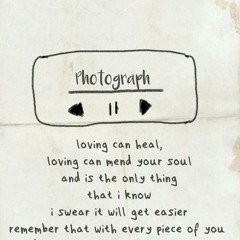 Photograph
loving can heal,
loving can mend your soul
and is the only thing
that i know
i swear it will get easier
remember that with every piece of you